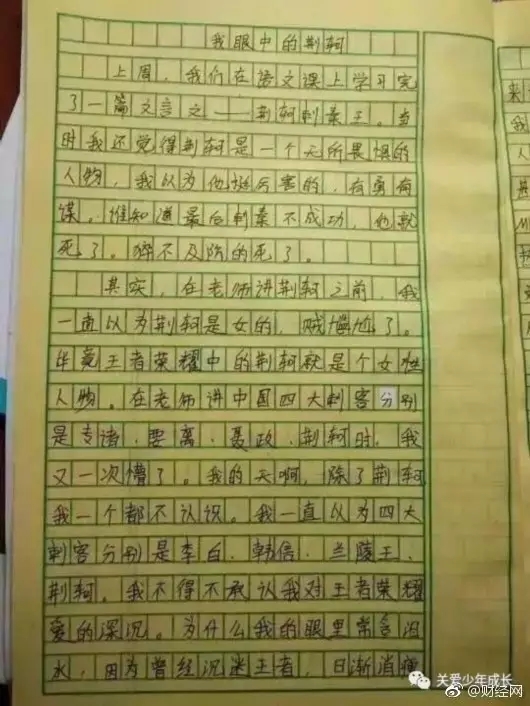 我眼中的荆轲
上周，我们在语文课上学习完
了一篇文言文——荆轲刺秦王。当
时我还觉得荆轲是一个无所畏惧的
人物，我以为他挺厉害的，有勇有
谋。谁知道最后刺秦不成功，他就
死了。猝不及防的死了。
其实，在老师讲荆轲之前，我
一直以为荆轲是女的，贼尴尬了。
毕竟王者荣耀中的荆轲就是个女性
人物。在老师讲中国四大刺客分别
是专诸、要离、聂政、荆轲时，我
又一次懵了。我的天啊，除了荆轲
我一个都不认识。我一直以为四大
刺客分别是李白、韩信、兰陵王、
荆轲。我不得不承认我对王者荣耀
爱的深沉。为什么我的眼里常含泪
水，因为曾经沉迷王者，日渐消瘦
来
我
人
关爱少年成长
@财经网